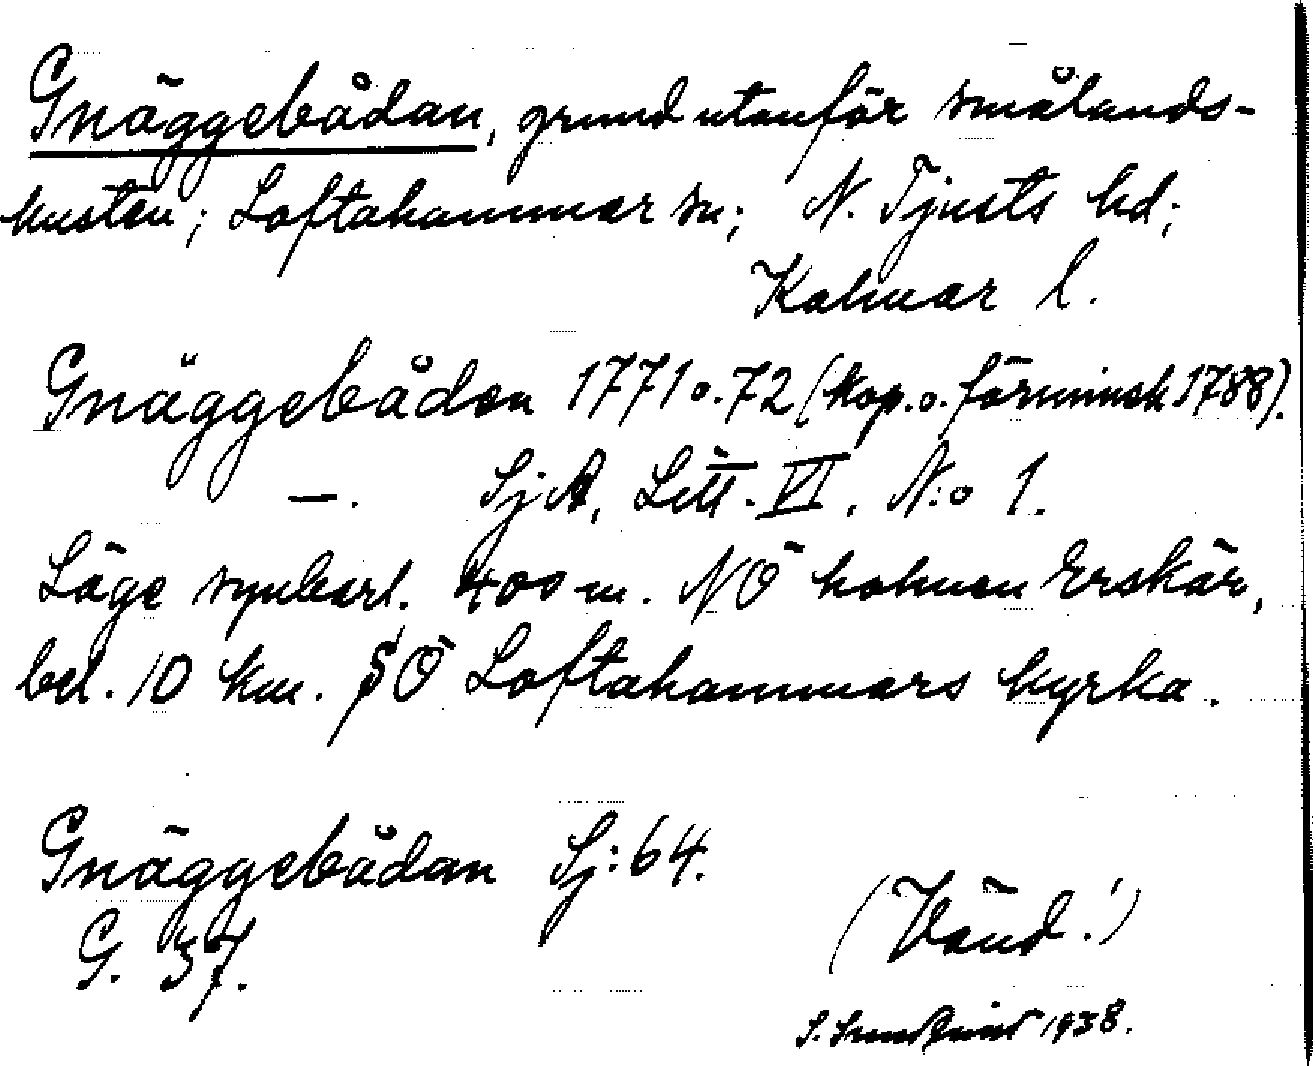 Gnäggebådan, grund utanför smålands-
kusten; Loftahammar sn; N. Tjusts hd;
Kalmar l.
Gnäggebåden 1771 o. 72 (kop. o. förminsk 1788).
—. SjA, Litt. VI. N:o 1.
Läge synbarl. 400 m. NÖ holmen Erskär,
bel. 10 km. SÖ Loftahammars kyrka.
Gnäggebådan Sj: 64.
G. 37.
(Vänd!)
S. 1938.